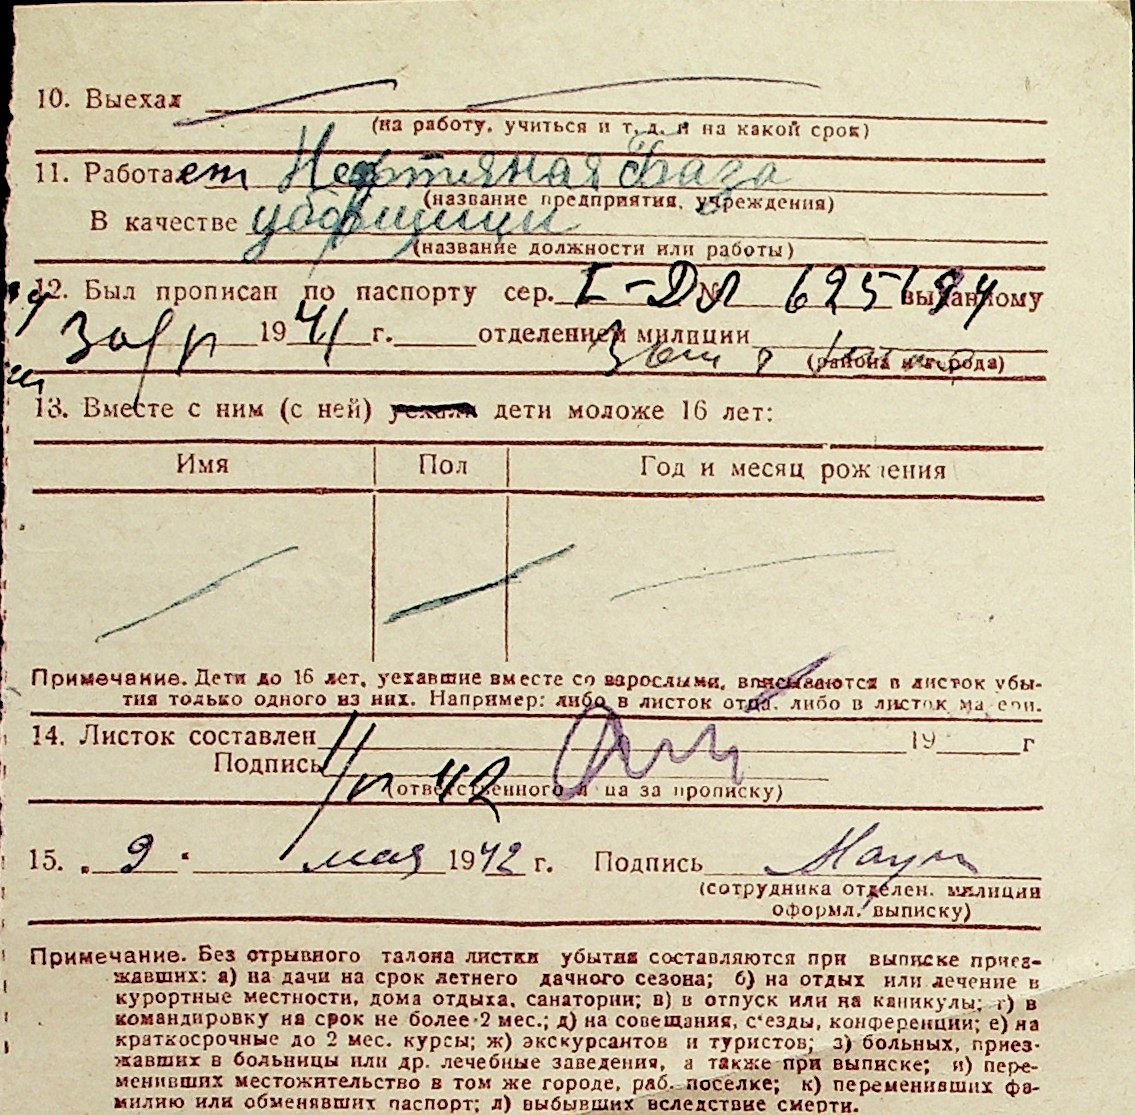 10. Выехал
(на работу, учиться и т. д. и на какой срок)
11. Работает Нефтяная база
(название предприятия, учреждения)
В качестве уборщицы
(название должности или работы)
12. Был прописан по паспорту сер. I-ДЛ № 625194 выданному
1941 г. отделением милиции
(района и города)
13. Вместе с ним (с ней) уехали дети моложе 16 лет:
Имя Пол Год и месяц рождения
Примечание. Дети до 16 лет, уехавшие вместе со взрослыми, вписываются в листок убы-
тия только одного из них. Например: либо в листок отца, либо в листок матери.
14. Листок составлен 19 г
Подпись 42
(ответственного лица за прописку)
15. „ 9 " мая 1942 г. Подпись
(сотрудника отделен. милиции
оформл. выписку)
Примечание. Без отрывного талона листки убытия составляются при выписке приез-
жавших: а) на дачи на срок летнего дачного сезона; б) на отдых или лечение в
курортные местности, дома отдыха, санатории; в) в отпуск или на каникулы; г) в
командировку на срок не более 2 мес.; д) на совещания, с'езды, конференции; е) на
краткосрочные до 2 мес. курсы; ж) экскурсантов и туристов; з) больных, приез-
жавших в больницы или др. лечебные заведения, а также при выписке; и) пере-
менивших местожительство в том же городе, раб. поселке; к) переменивших фа-
милию или обменявших паспорт; л) выбывших вследствие смерти.